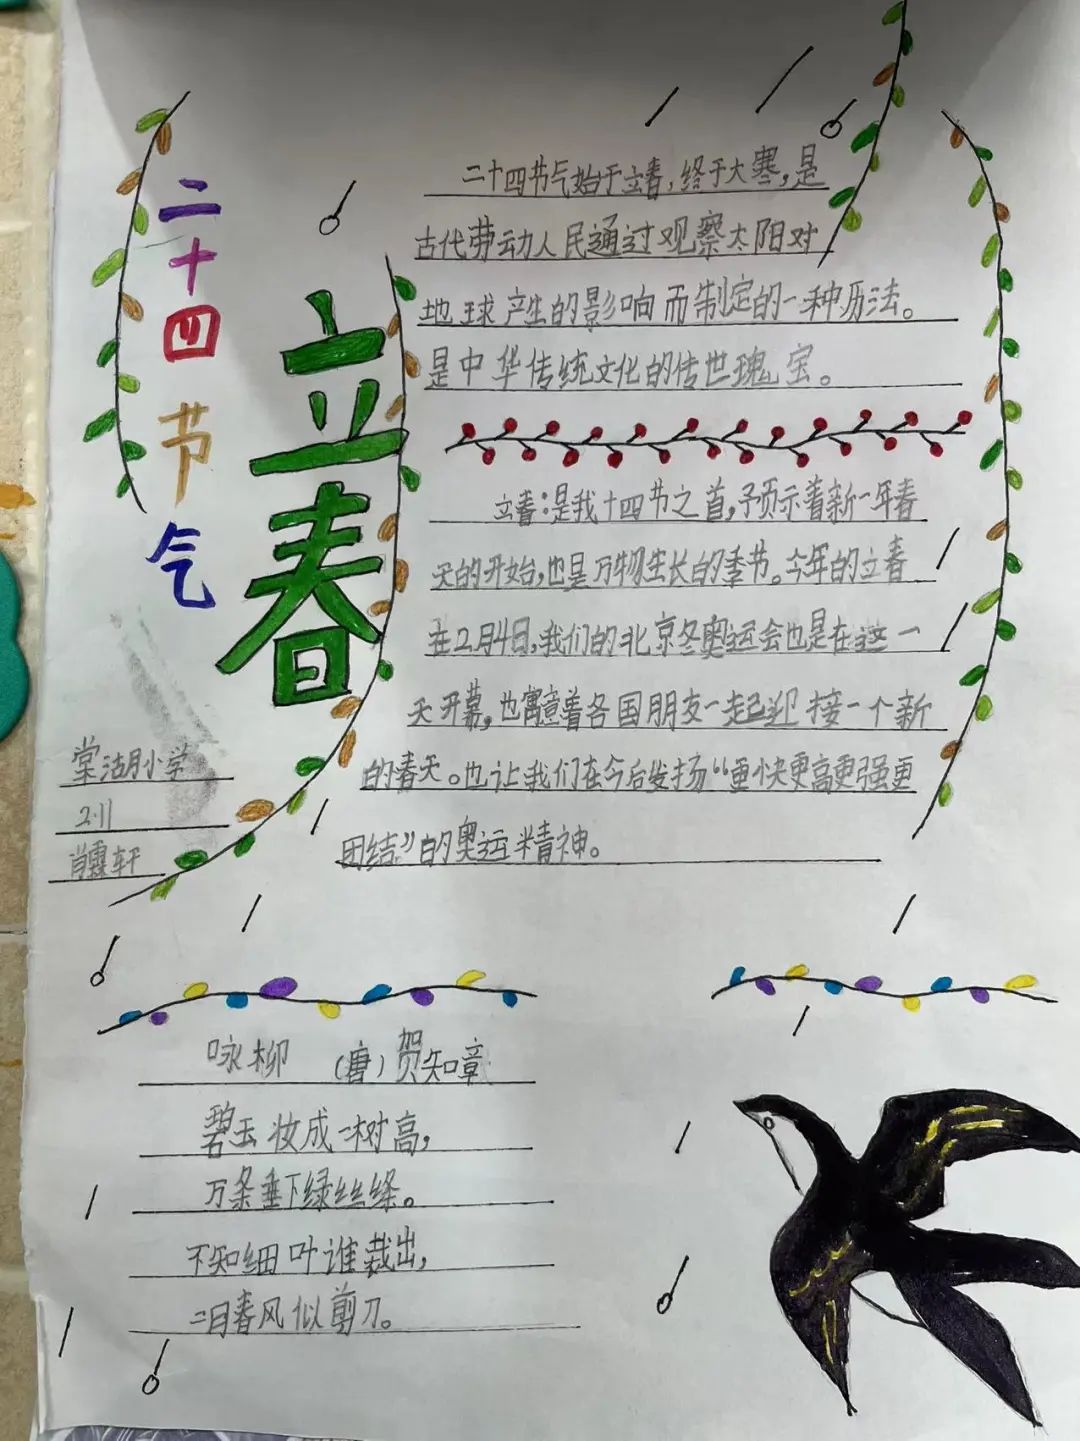 二十四节气
立春
二十四节气始于立春，终于大寒，是
古代劳动人民通过观察太阳对
地球产生的影响而制定的一种历法。
是中华传统文化的传世瑰宝。
立春：是我十四节之首，预示着新一年春
天的开始，也是万物生长的季节。今年的立春
在二月4日，我们的北京冬奥运会也是在这一
天开幕，也寓意着各国朋友一起迎接一个新
的春天。也让我们在今后发扬“更快更高更强更
团结”的奥运精神。
棠湖小学
2.11
肖霖轩
咏柳 （唐）贺知章
碧玉妆成一树高，
万条垂下绿丝绦。
不知细叶谁裁出，
二月春风似剪刀。